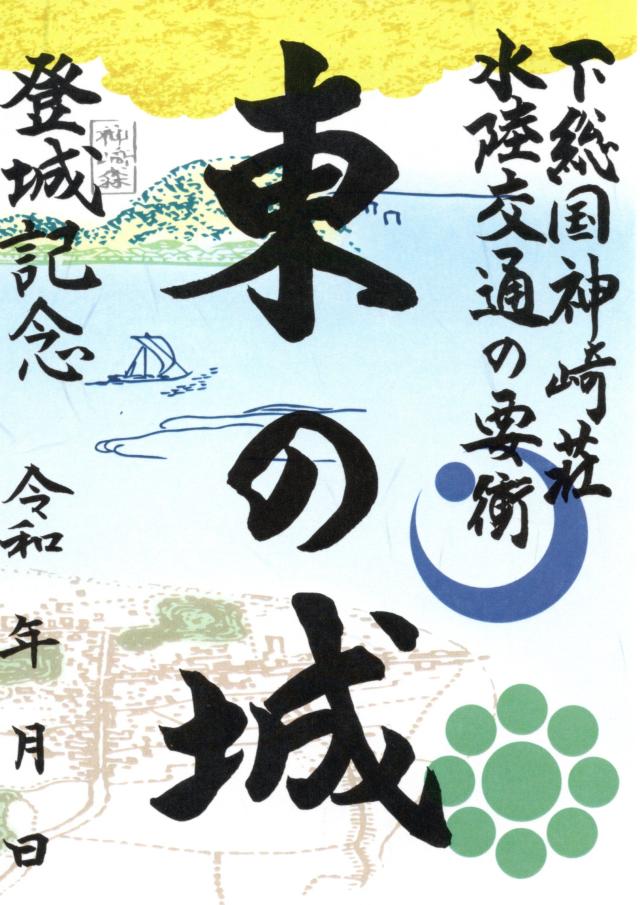 下総国神崎荘
水陸交通の要衝
東の城
登城記念
令和 年 月 日
神崎森